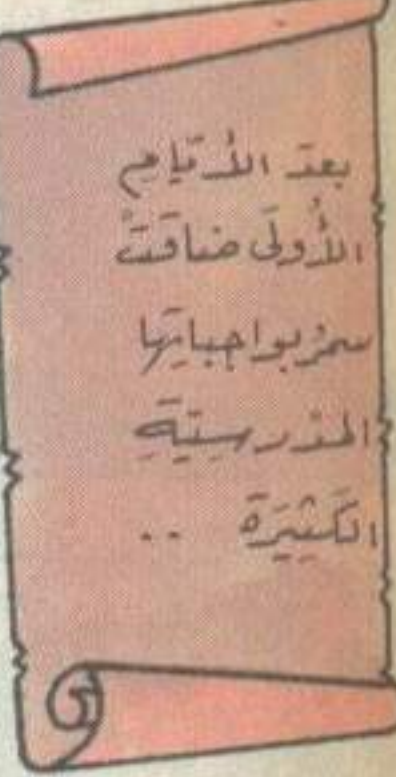 بعدَ الأَيّامِ
الأُولَى ضَاقَتْ
سمرُ بواجباتِها
المَدْرسِيَّةِ
الكَثِيرَةِ ..